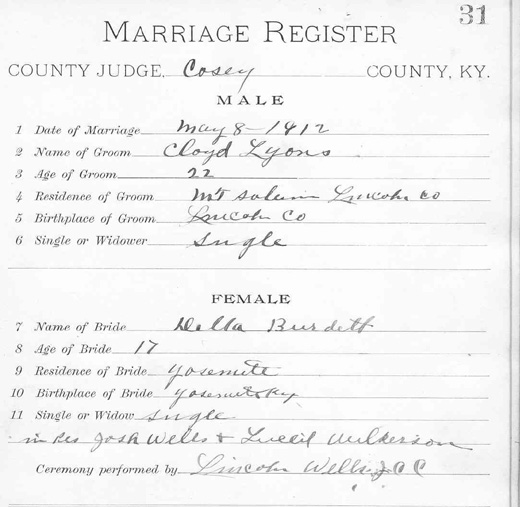 31
MARRIAGE REGISTER
COUNTY JUDGE, Cosey COUNTY, KY.
MALE
1 Date of Marriage May 8-1912
2 Name of Groom Cloyd Lyons
3 Age of Groom 22
4 Residence of Groom Mt Salem Lincoln co
5 Birthplace of Groom Lincoln Co
6 Single or Widower Single
FEMALE
7 Name of Bride Della Burdett
8 Age of Bride 17
9 Residence of Bride Yosemite
10 Birthplace of Bride Yosemite Ky
11 Single or Widow Single
in Res Josh Wells & Luecil Wilkerson
Ceremony performed by Lincoln Wells J C C